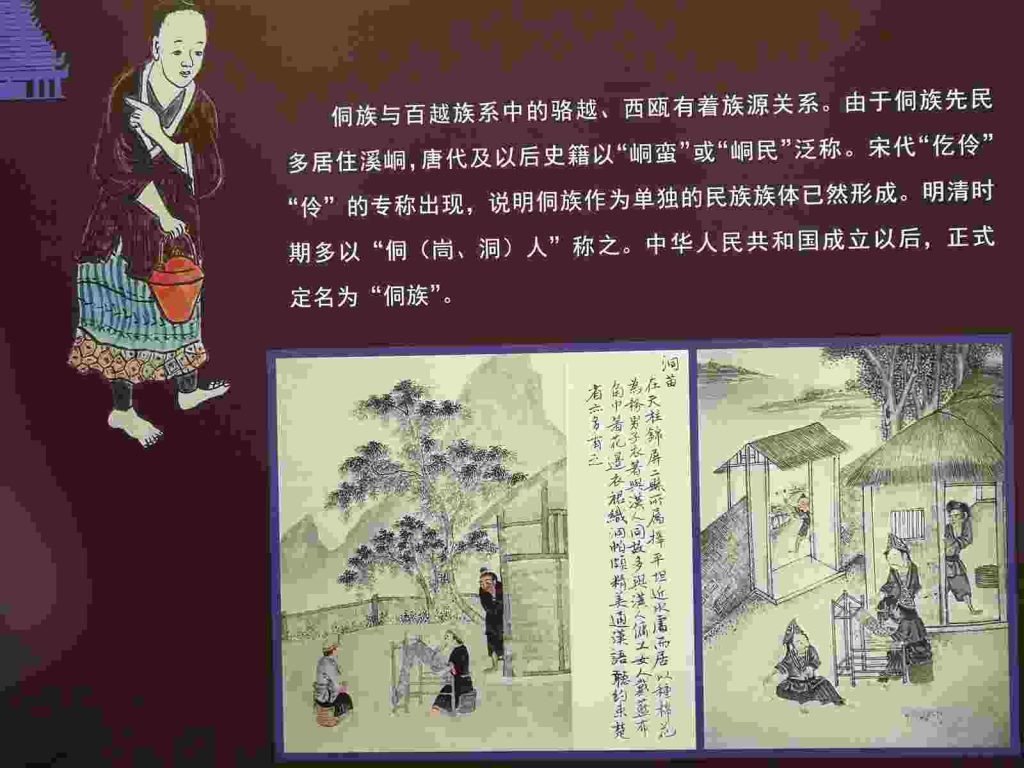 侗族与百越族系中的骆越、西瓯有着族源关系。由于侗族先民
多居住溪峒,唐代及以后史籍以“峒蛮”或“峒民”泛称。宋代“仡伶”
“伶” 的专称出现，说明侗族作为单独的民族族体已然形成。明清时
期多以 “侗（峝、洞）人” 称之。中华人民共和国成立以后，正式
定名为 “侗族”。
洞苗
在天柱錦屏二縣所屬擇平坦近水處而居以種棉花
為務男子衣著與漢人同故多與漢人傭工女人戴藍布
角巾著花邊衣裙織洞帕頗精美通漢語聽約束楚
省亦多有之